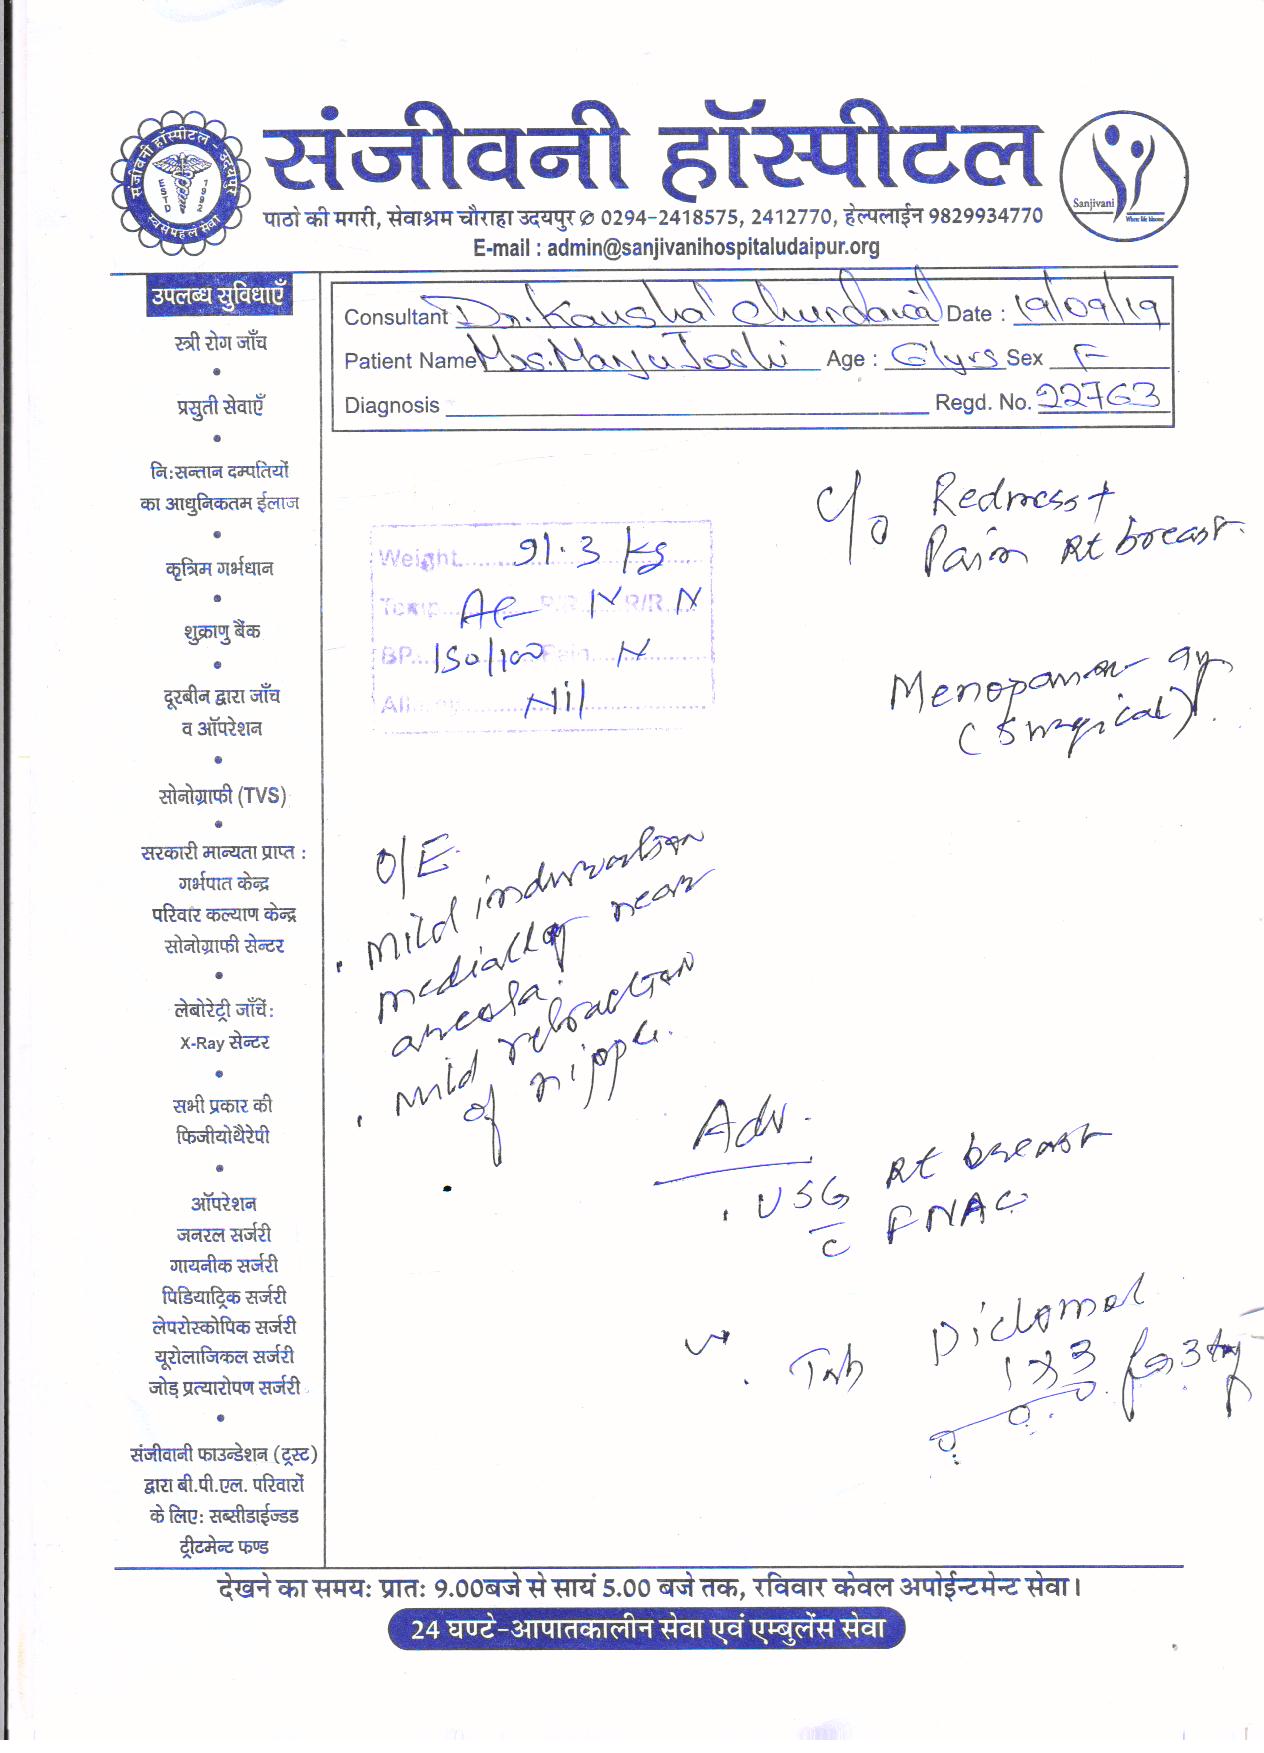 संजीवनी हॉस्पीटल - उदयपुर
ESTD 1992
स्वस पहले सेवा
संजीवनी हॉस्पीटल
पाठो की मगरी, सेवाश्रम चौराहा उदयपुर ✆ 0294-2418575, 2412770, हेल्पलाईन 9829934770
E-mail : admin@sanjivanihospitaludaipur.org
Sanjivani
उपलब्ध सुविधाएँ
स्त्री रोग जाँच
प्रसुती सेवाएँ
नि:सन्तान दम्पतियों
का आधुनिकतम ईलाज
कृत्रिम गर्भधान
शुक्राणु बैंक
दूरबीन द्वारा जाँच
व ऑपरेशन
सोनोग्राफी (TVS)
सरकारी मान्यता प्राप्त :
गर्भपात केन्द्र
परिवार कल्याण केन्द्र
सोनोग्राफी सेन्टर
लेबोरेट्री जाँचें:
X-Ray सेन्टर
सभी प्रकार की
फिजीयोथैरेपी
ऑपरेशन
जनरल सर्जरी
गायनीक सर्जरी
पिडियाट्रिक सर्जरी
लेपरोस्कोपिक सर्जरी
यूरोलाजिकल सर्जरी
जोड़ प्रत्यारोपण सर्जरी
संजीवानी फाउन्डेशन (ट्रस्ट)
द्वारा बी.पी.एल. परिवारों
के लिए: सब्सीडाईज्डड
ट्रीटमेन्ट फण्ड
Consultant Dr. Kaushal Chundawat Date : 19/09/19
Patient Name Mrs. Manju Joshi Age : 61yrs Sex F
Diagnosis Regd. No. 22763
c/o Redness +
Pain Rt breast.
Weight 91.3 kg
Temp Af P/R N R/R N
BP 150/100 Pain N
All Nil
Menopause - 9y
(Surgical).
O/E
. Mild induration
medially near
areola.
. Mild retraction
of nipple.
Adv.
. USG Rt breast
c FNAC
. Tab Diclomol
1 x 3 for 3 day
देखने का समयः प्रातः 9.00बजे से सायं 5.00 बजे तक, रविवार केवल अपोईन्टमेन्ट सेवा।
24 घण्टे-आपातकालीन सेवा एवं एम्बुलेंस सेवा